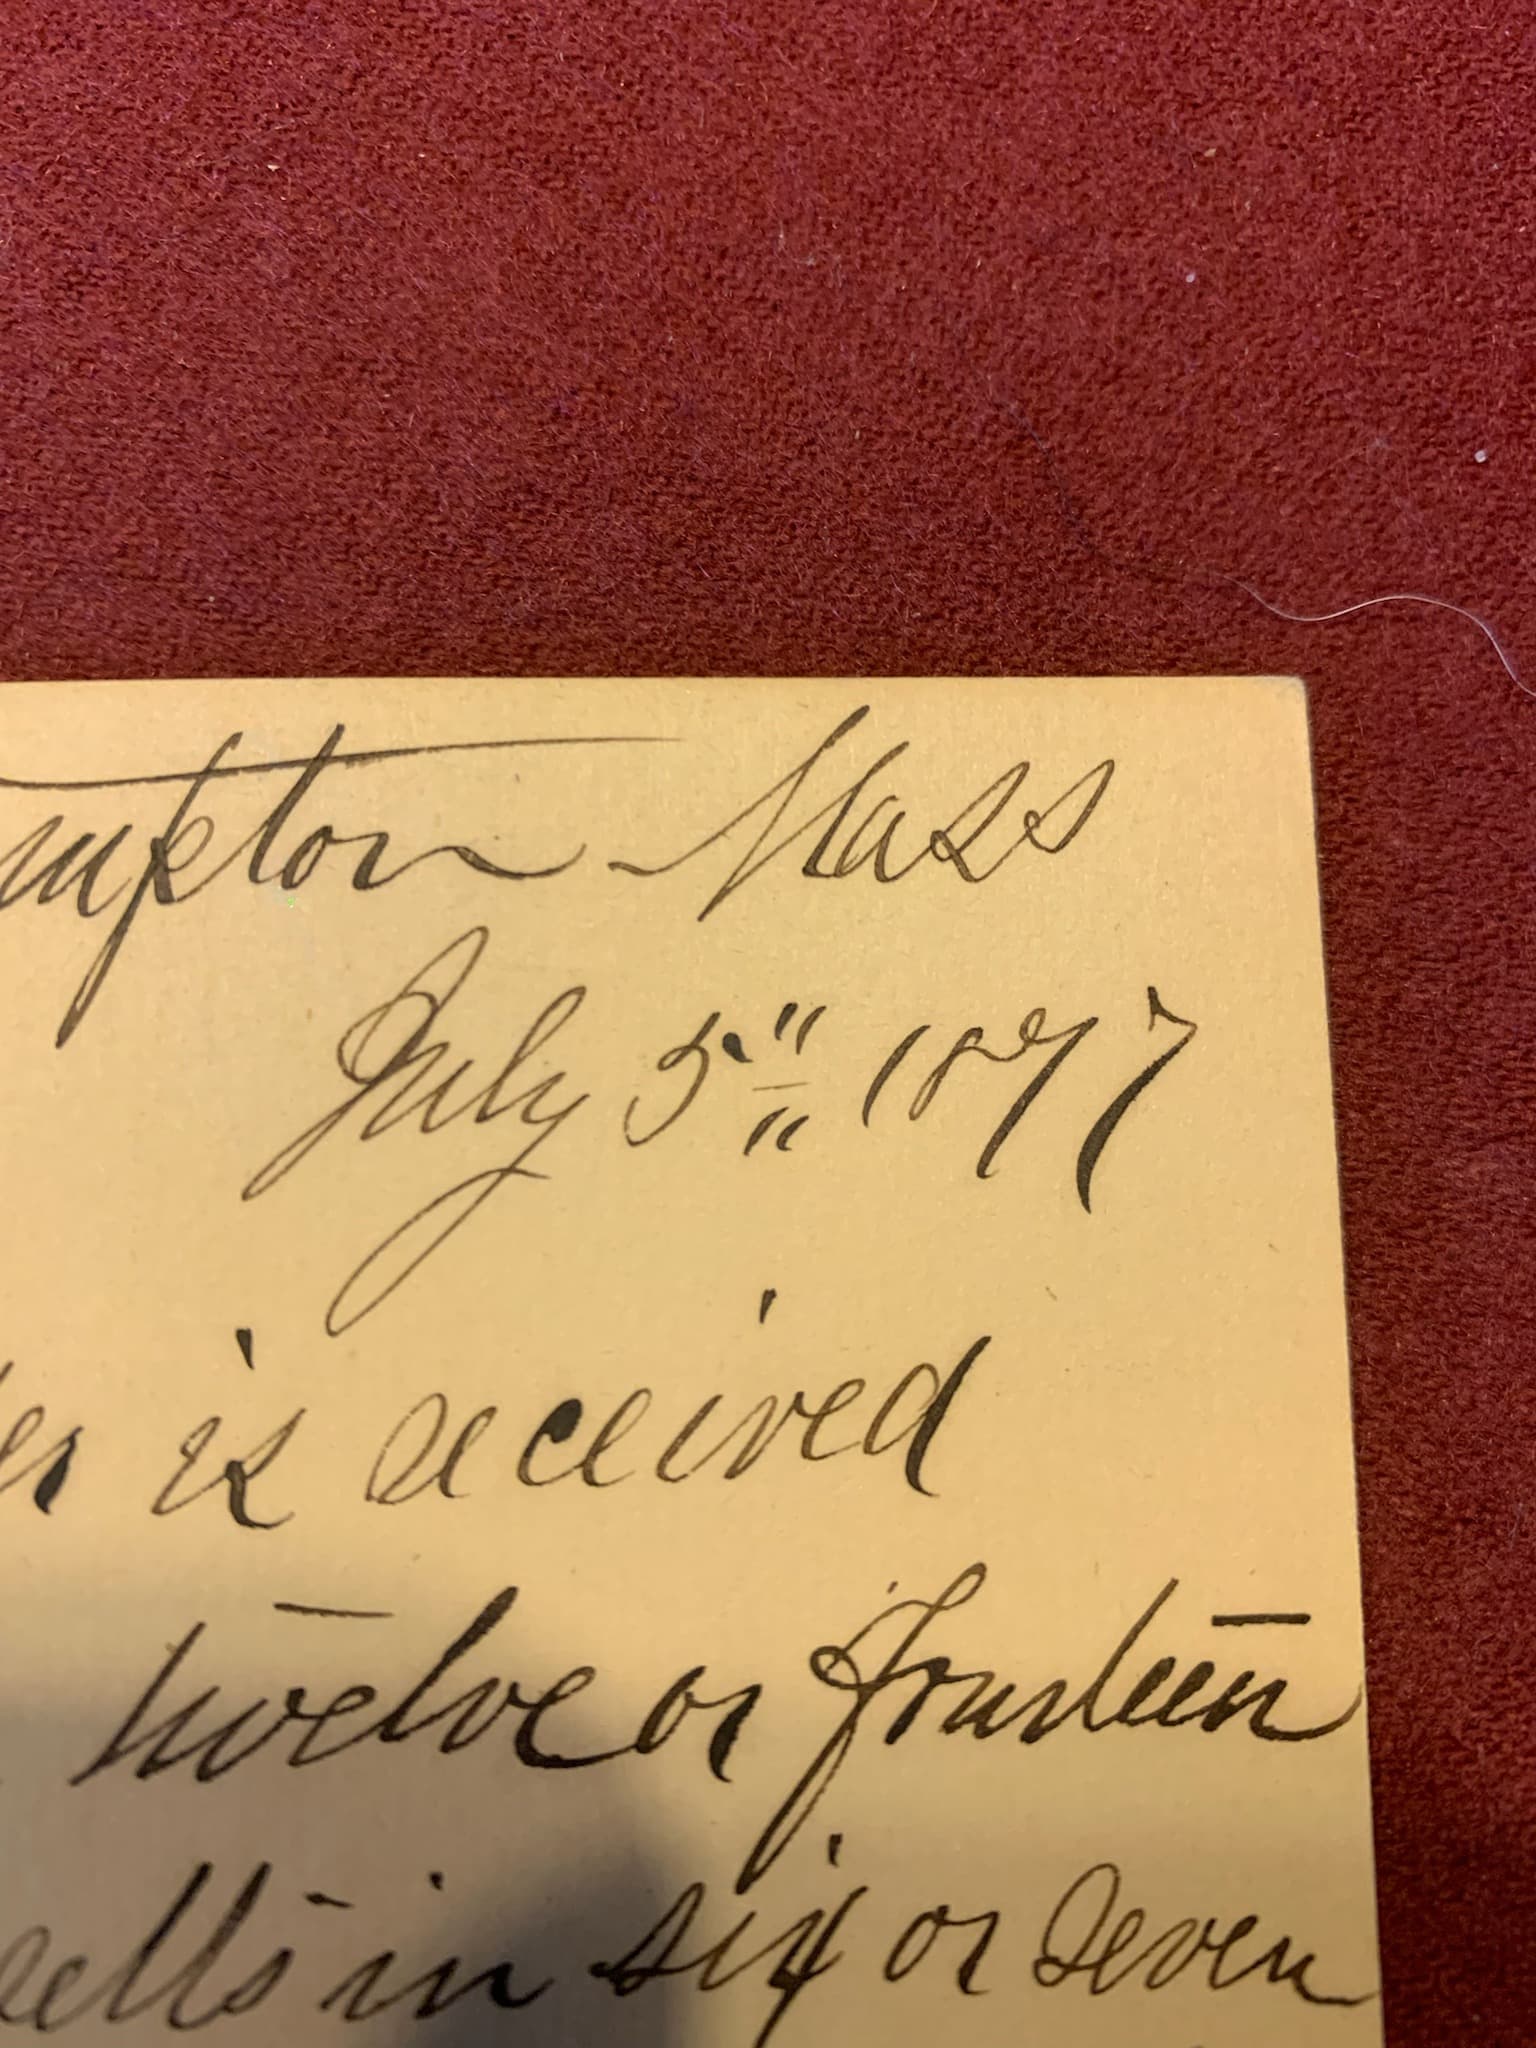 mpton Mass
July 5" 1877
er is received
twelve or fourteen
sells in six or seven